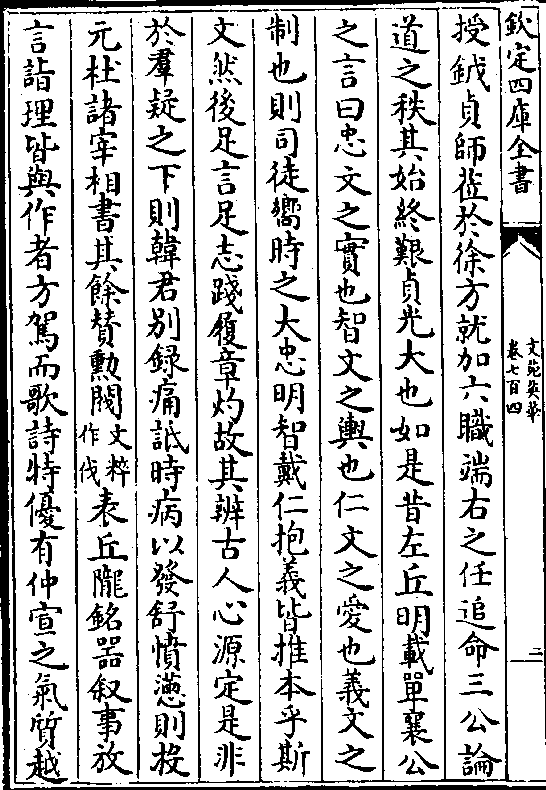 欽定四庫全書
文苑英華
卷七百四
二
授鉞貞師蒞於徐方就加六職端右之任追命三公論
道之秩其始終艱貞光大也如是昔左丘明載單襄公
之言曰忠文之實也智文之輿也仁文之愛也義文之
制也則司徒嚮時之大忠明智戴仁抱義皆推本乎斯
文然後足言足志踐履章灼故其辨古人心源定是非
於羣疑之下則韓君別録痛詆時病以發舒憤懣則投
元杜諸宰相書其餘賛勲閥文粹作伐表丘隴銘器叙事放
言詣理皆與作者方駕而歌詩特優有仲宣之氣質越